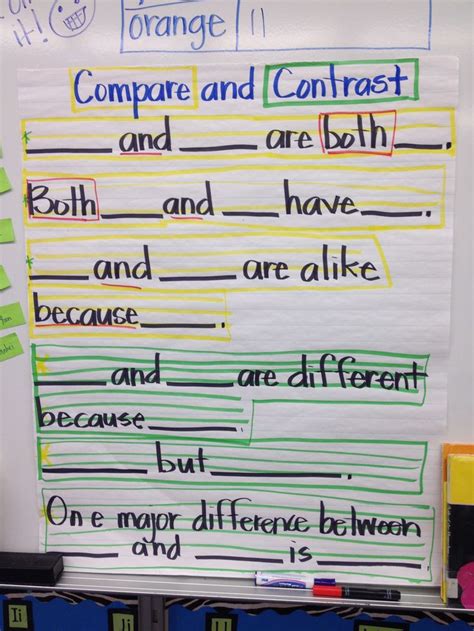 it!
orange ||
Compare and Contrast
* ____ and ____ are both ___.
Both ____ and ____ have ____.
* ___ and ____ are alike
because _____.
* ____ and ____ are different
because _____.
* ____ but ________.
One major difference between
____ and ____ is ____
Ii
Jj
Ll